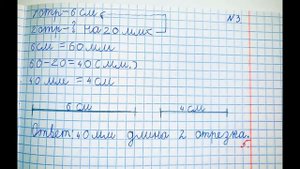 1 отр-6 см
№3
2 отр-? на 20 мм<
6 см = 60 мм
60-20=40 (мм.)
40 мм = 4 см
6 см 4 см
Ответ: 40 мм длина 2 отрезка.